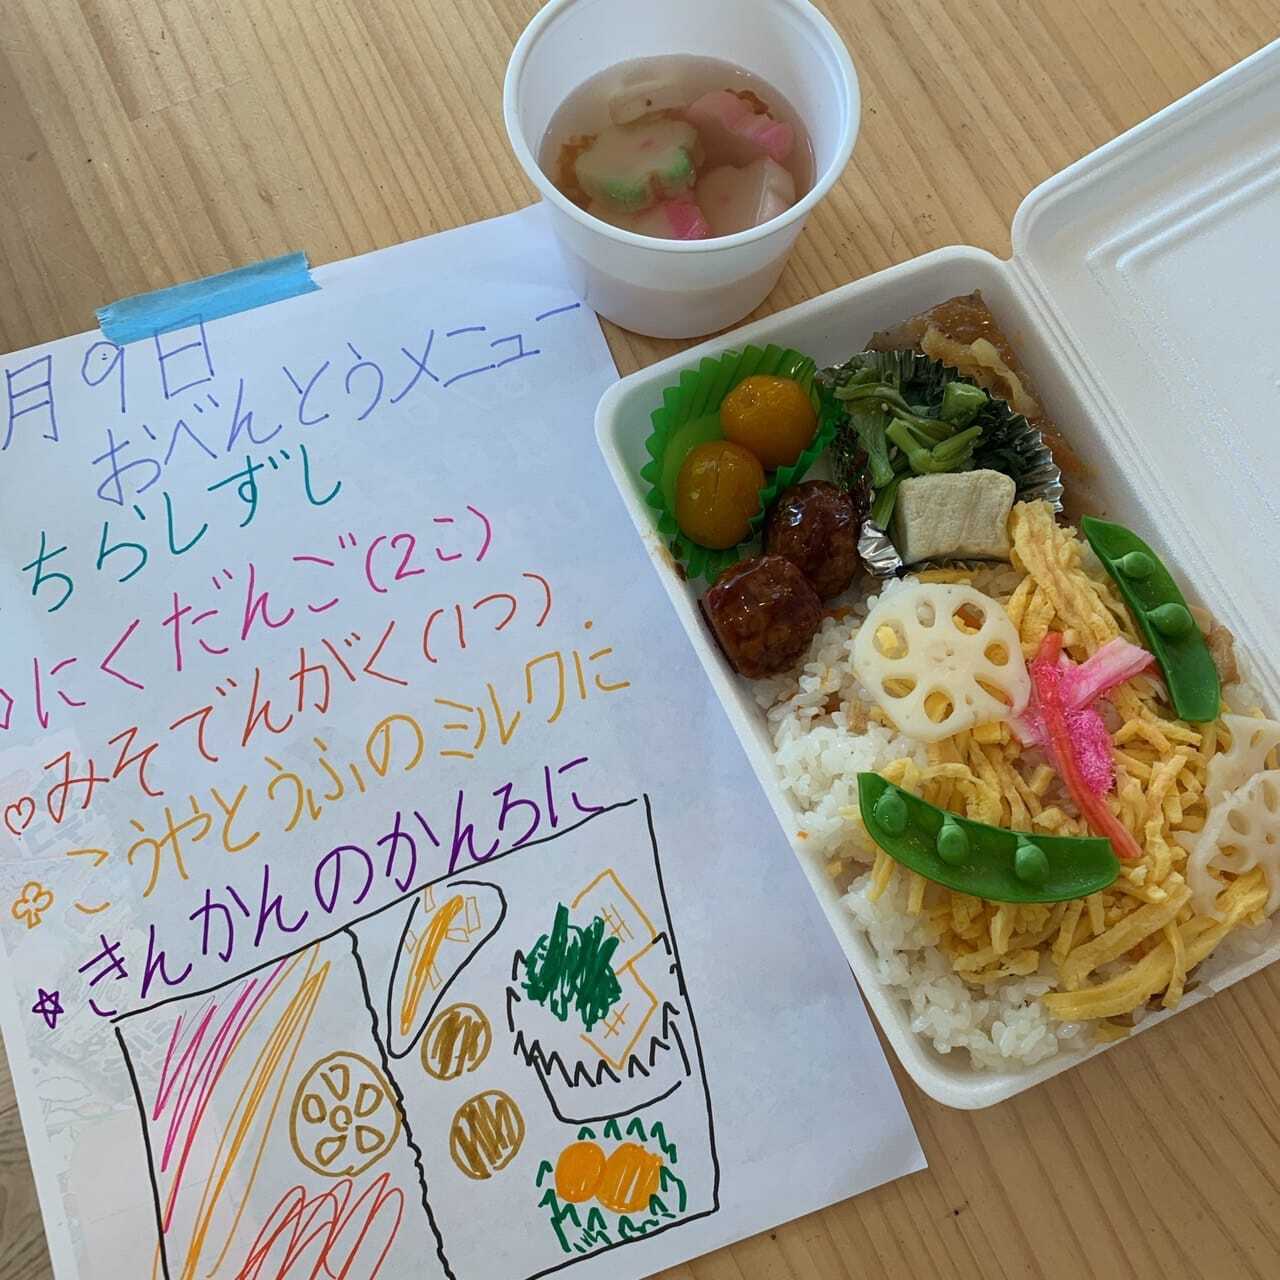 月9日
おべんとうメニュー
ちらしずし
にくだんご(2こ)
♡みそでんがく(1つ)
♧こうやとうふのミルクに
☆きんかんのかんろに